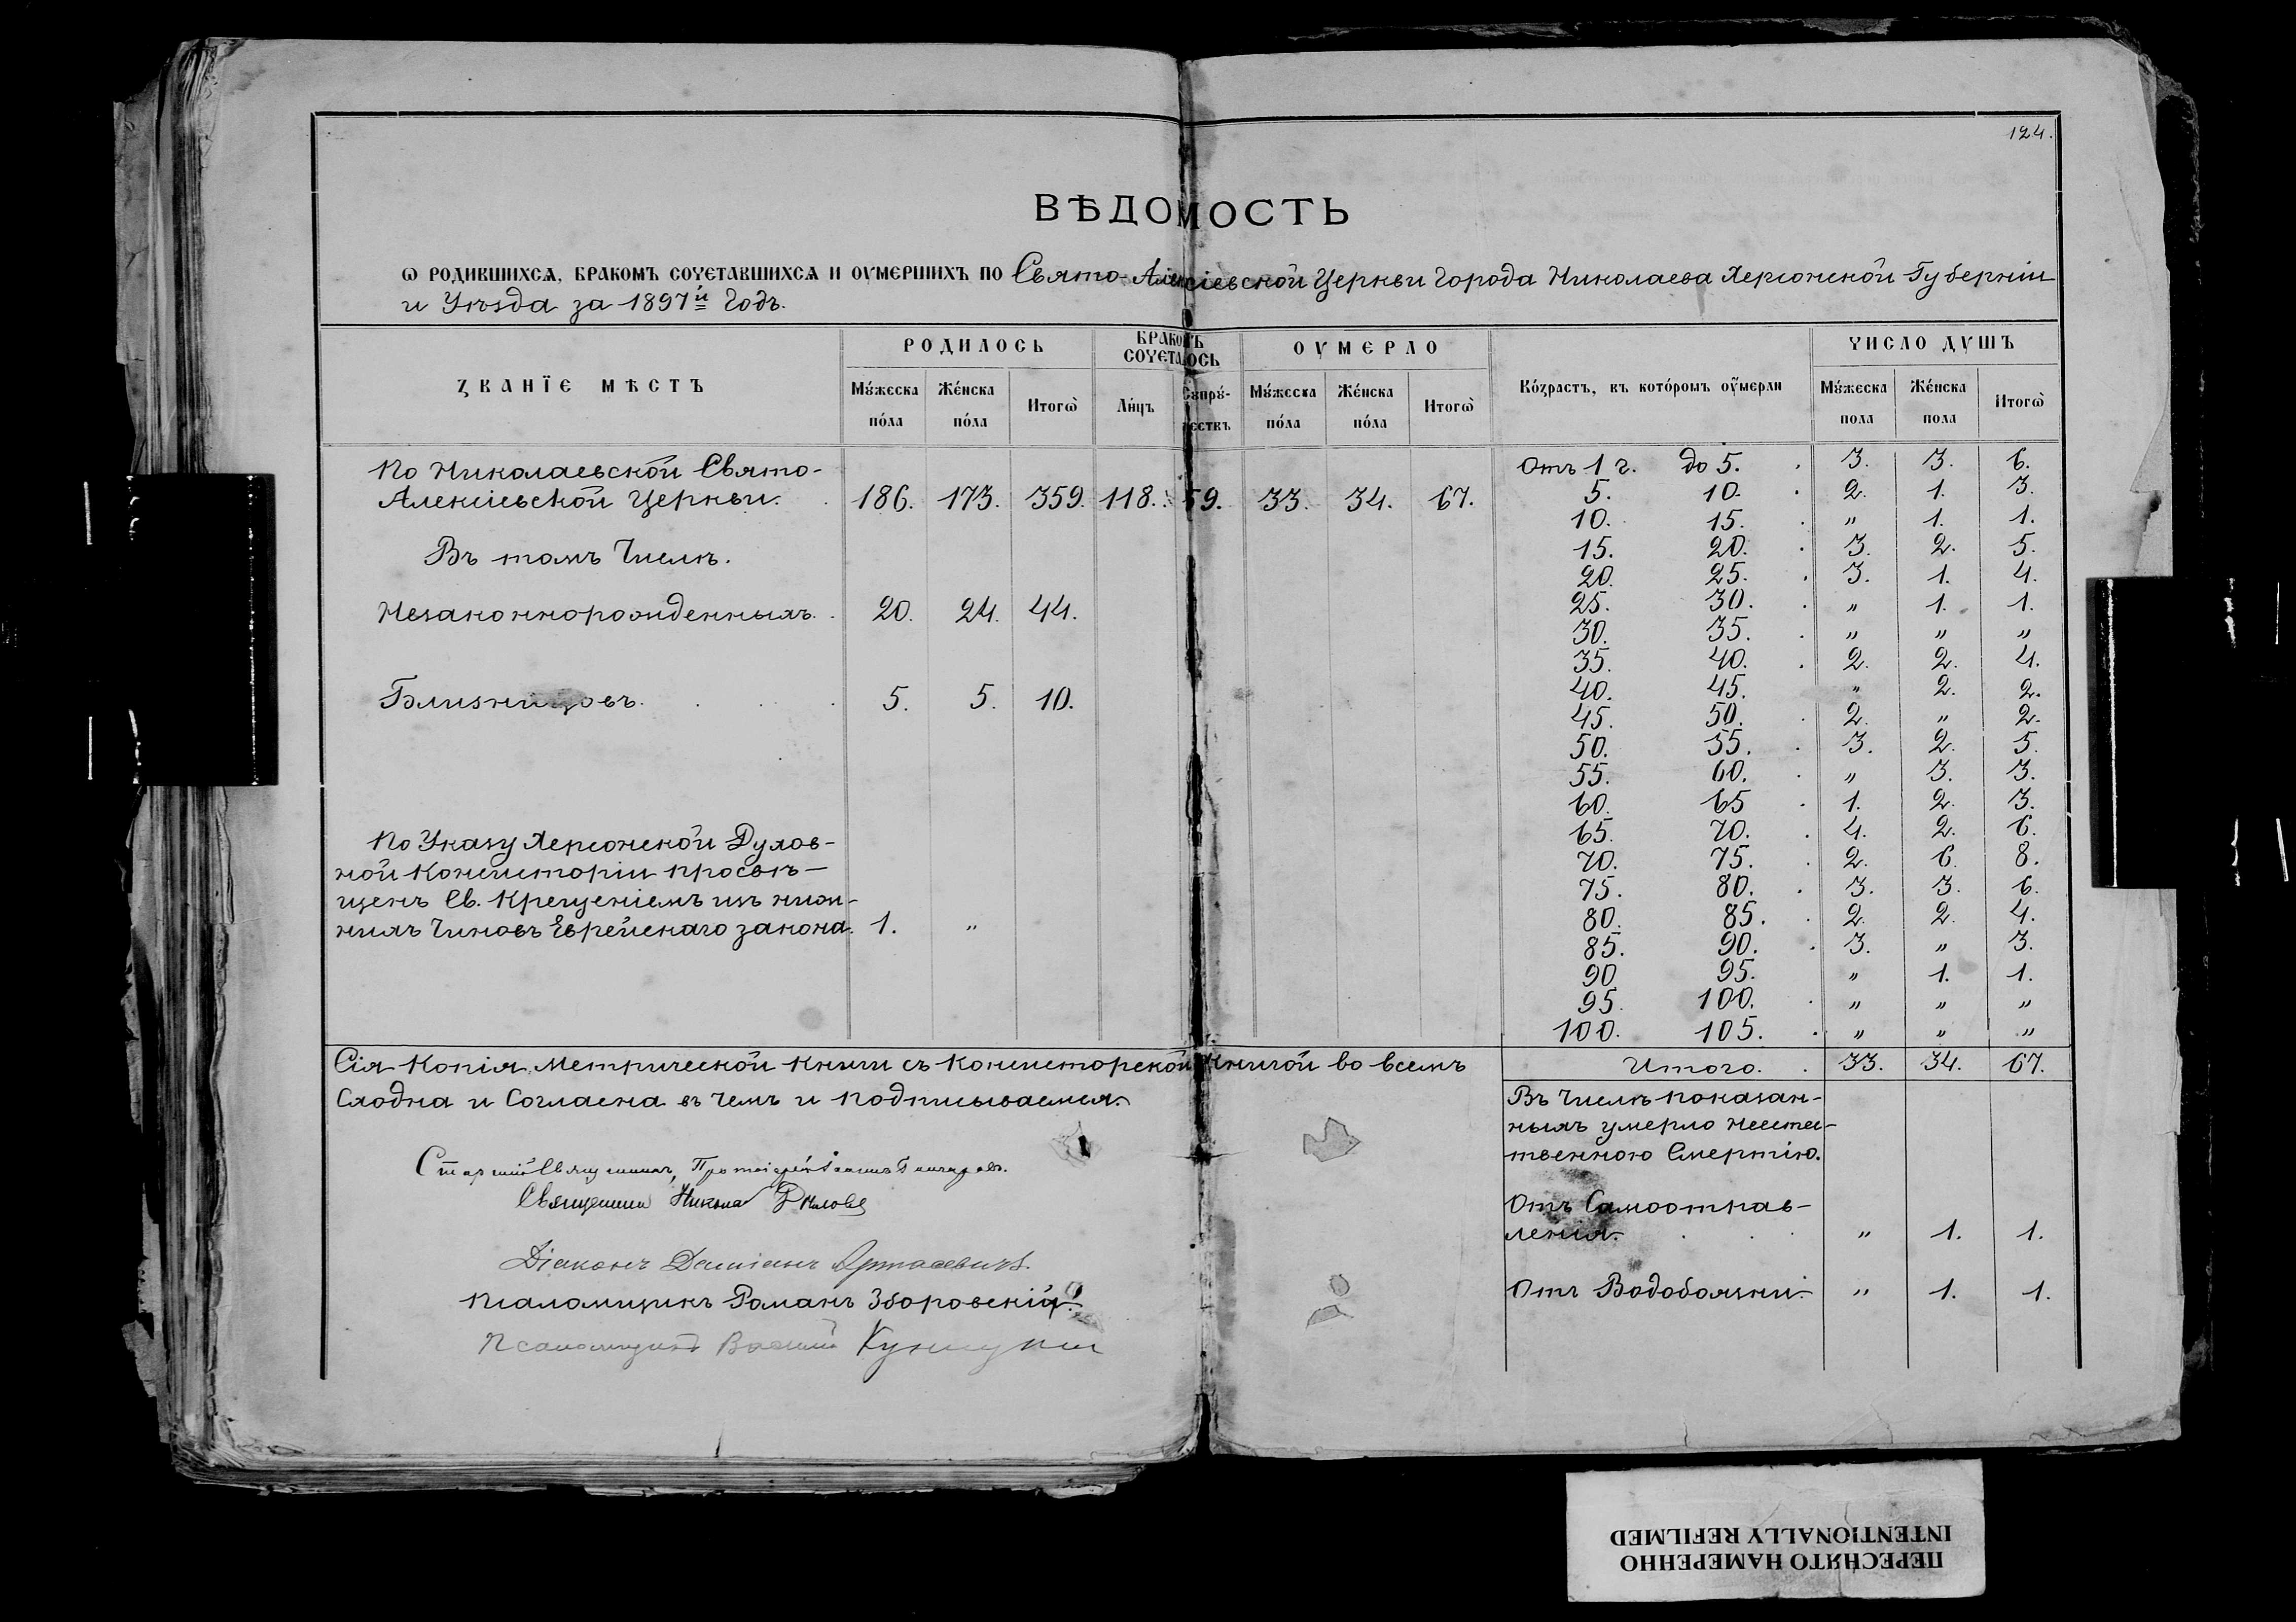 124.
ВѢДОМОСТЬ
Ѡ РОДИВШИХСѦ, БРАКОМЪ СОЧЕТАВШИХСѦ И ОУМЕРШИХЪ ПО Свято-Алексіевской Церкви Города Николаева Херсонской Губерніи
и Уѣзда за 1897й Годъ.
ЗВАНЇЕ МѢСТЪ
РОДИЛОСЬ
БРАКОМЪ СОЧЕТАЛОСЬ
ОУМЕРЛО
Во́зрастъ, въ кото́ромъ оу҆́мерли
ЧИСЛО ДУШЪ
Му́жеска по́ла Же́нска по́ла Итогѡ̀ Ли́цъ Супру́жествъ Му́жеска по́ла Же́нска по́ла Итогѡ̀ Му́жеска пола Же́нска пола Итогѡ̀
По Николаевской Свято-
Алексіевской Церкви. 186. 173. 359. 118. 59. 33. 34. 67.
Въ томъ Числѣ.
Незаконнорожденныхъ. 20. 24. 44.
Близнецовъ. 5. 5. 10.
По Указу Херсонской Духов-
ной Консисторіи просвѣ-
щенъ Св. Крещеніемъ изъ ниж-
нихъ Чиновъ Еврейскаго закона. 1. "
Отъ 1 г. до 5. 3. 3. 6.
5. 10. 2. 1. 3.
10. 15. " 1. 1.
15. 20. 3. 2. 5.
20. 25. 3. 1. 4.
25. 30. " 1. 1.
30. 35. " " "
35. 40. 2. 2. 4.
40. 45. " 2. 2.
45. 50. 2. " 2.
50. 55. 3. 2. 5.
55. 60. " 3. 3.
60. 65 1. 2. 3.
65. 70. 4. 2. 6.
70. 75. 2. 6. 8.
75. 80. 3. 3. 6.
80. 85. 2. 2. 4.
85. 90. 3. " 3.
90 95. " 1. 1.
95. 100. " " "
100. 105. " " "
Итого. 33. 34. 67.
Сія Копія Метрической Книги съ Консисторской Книгой во всемъ
Сходна и Согласна въ Чемъ и подписываемся.
Старшій Священникъ, Протоіерей
Священникъ Николай
Діаконъ Даміанъ
Псаломщикъ Романъ Зборовскій.
Псаломщикъ Василій
Въ Числѣ показан-
ныхъ умерло неестес-
твенною Смертію.
Отъ Самоотрав-
ленія. " 1. 1.
Отъ Водобоязни. " 1. 1.
ПЕРЕСНЯТО НАМЕРЕННО
INTENTIONALLY REFILMED